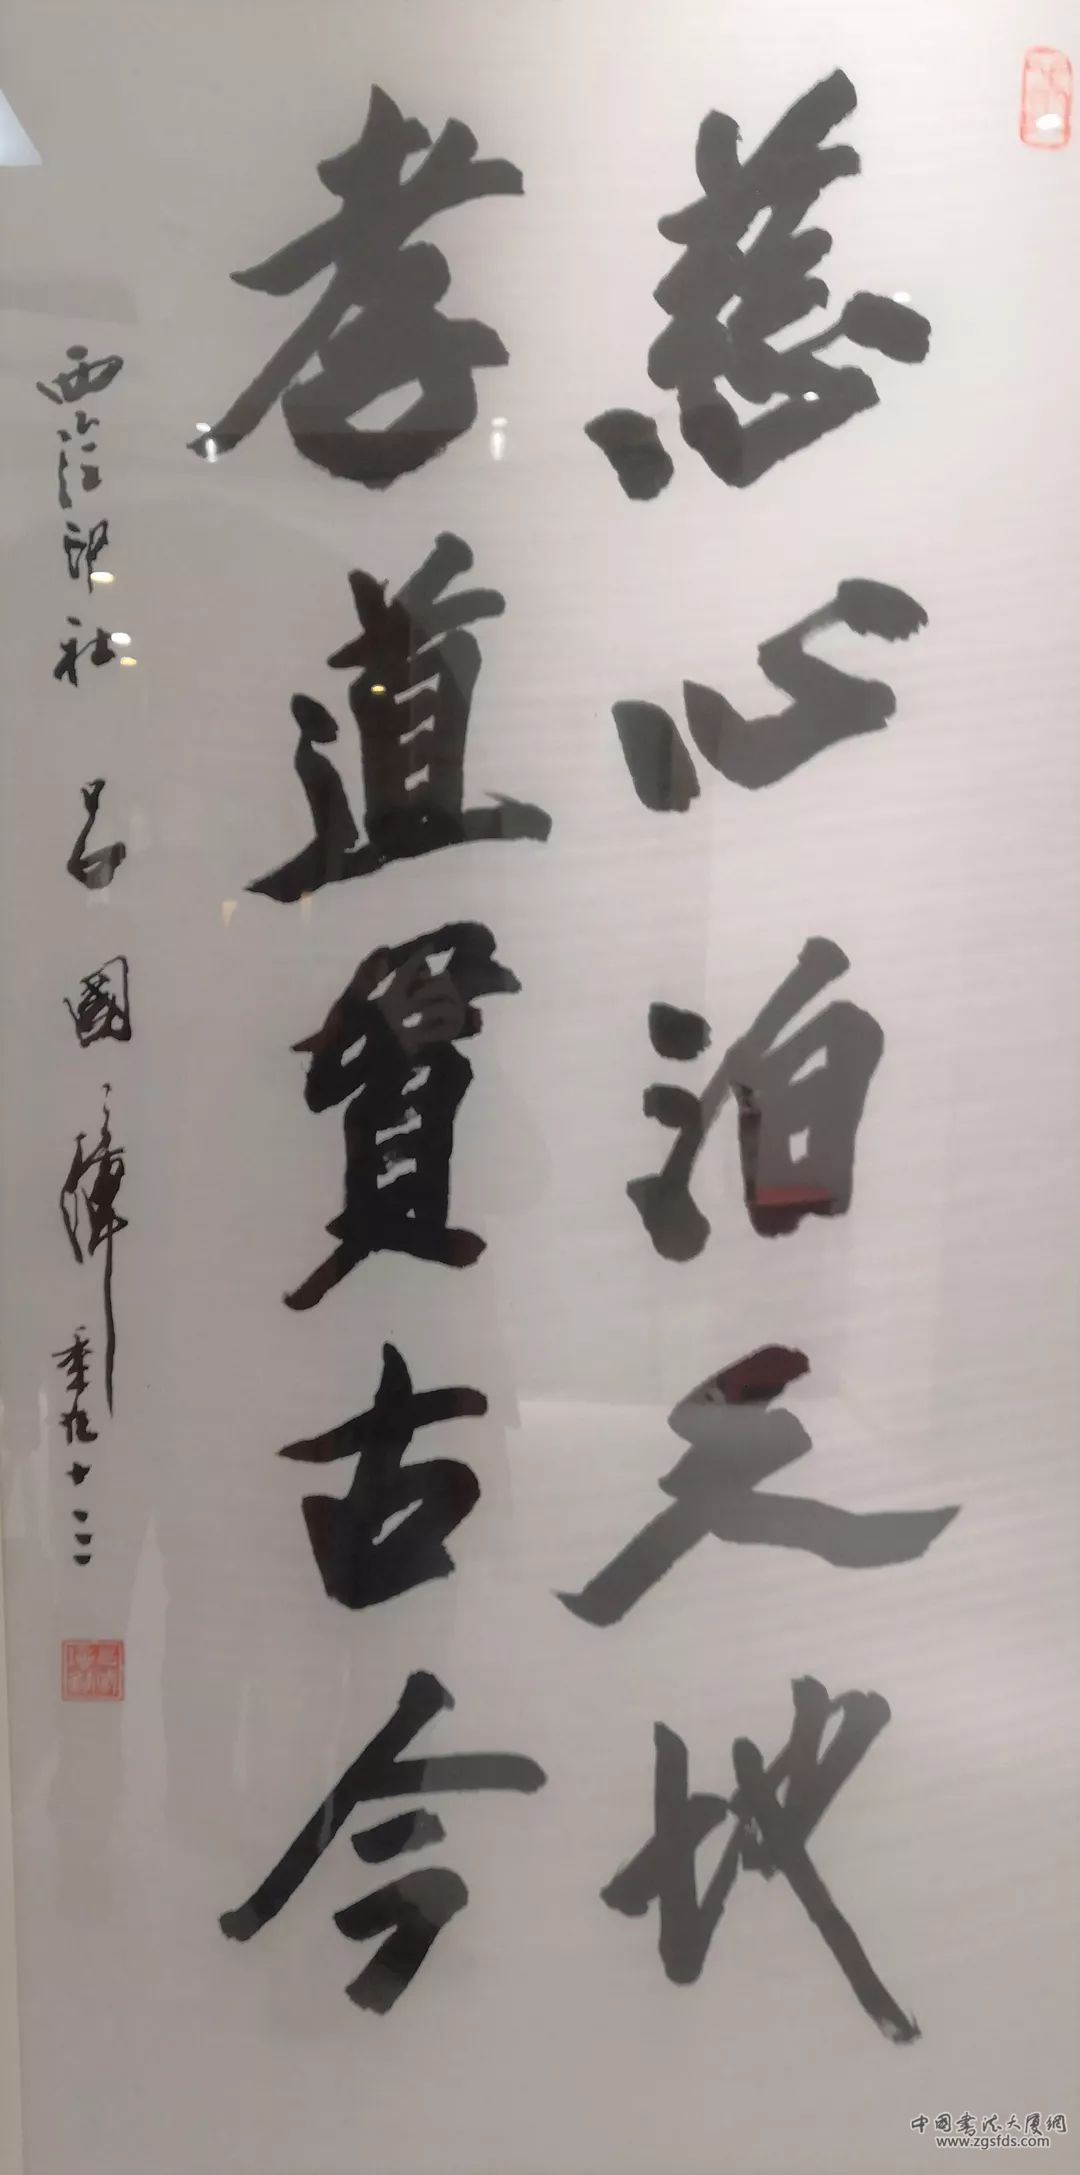 慈心泊天地
孝道貫古今
西泠印社 吕國璋 年九十二
中国书法大厦網
www.zgsfds.com